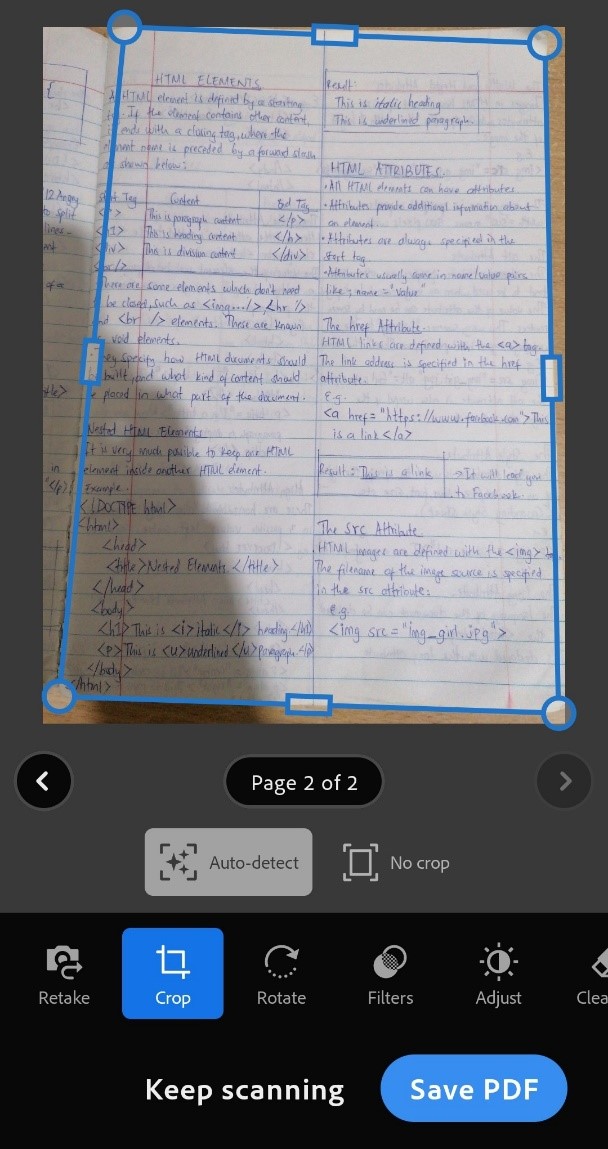 HTML ELEMENTS
HTML element is defined by a starting
If the element contains other content,
ends with a closing tag, where the
element name is preceded by a forward slash
shown below:
Start Tag Content End Tag
This is paragraph content </p>
This is heading content </h>
This is division content </div>
There are some elements which don't need
be closed, such as <img.../>, <hr />
<br /> elements. These are known
void elements.
They specify how HTML documents should
built, and what kind of content should
be placed in what part of the document.
Nested HTML Elements
It is very much possible to keep one HTML
element inside another HTML element.
Example.
<!DOCTYPE html>
<html>
<head>
<title>Nested Elements </title>
</head>
<body>
<h1>This is <i>italic</i> heading</h1>
<p>This is <u>underlined</u>paragraph.</p
</body>
</html>
Result:
This is italic heading
This is underlined paragraph.
HTML ATTRIBUTES.
•All HTML elements can have attributes
•Attributes provide additional information about
an element.
•Attributes are always specified in the
start tag.
•Attributes usually come in name/value pairs
like; name="value"
The href Attribute.
HTML links are defined with the <a> tag.
The link address is specified in the href
attribute.
E.g.
<a href="https://www.facebook.com">This
is a link</a>
Result: This is a link →It will lead you
to Facebook.
The src Attribute
HTML images are defined with the <img>
The filename of the image source is specified
in the src attribute:
E.g.
<img src="img_girl.jpg">
Page 2 of 2
Auto-detect No crop
Retake Crop Rotate Filters Adjust Clea
Keep scanning Save PDF